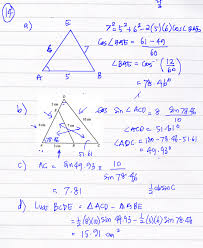 14
a)
E
6
A 5 B
7² = 5² + 6² - 2(5)(6) cos∠BAE
Cos∠BAE = 61 - 49
60
∠BAE = cos⁻¹ (12
60)
= 78.46°
b)
Sin∠ACD = 8 Sin 78.46
10
∠ACD = 51.61°
∠ADC = 180 - 78.46 - 51.61
= 49.93°
51.61
c) AC = Sin 49.93 × 10
Sin 78.46
= 7.81
½ab sin C
d) BCDE = △ACD - △ABE
= ½(8)(10) Sin 49.93 - ½(5)(6) Sin 78.46
= 15.91 cm²